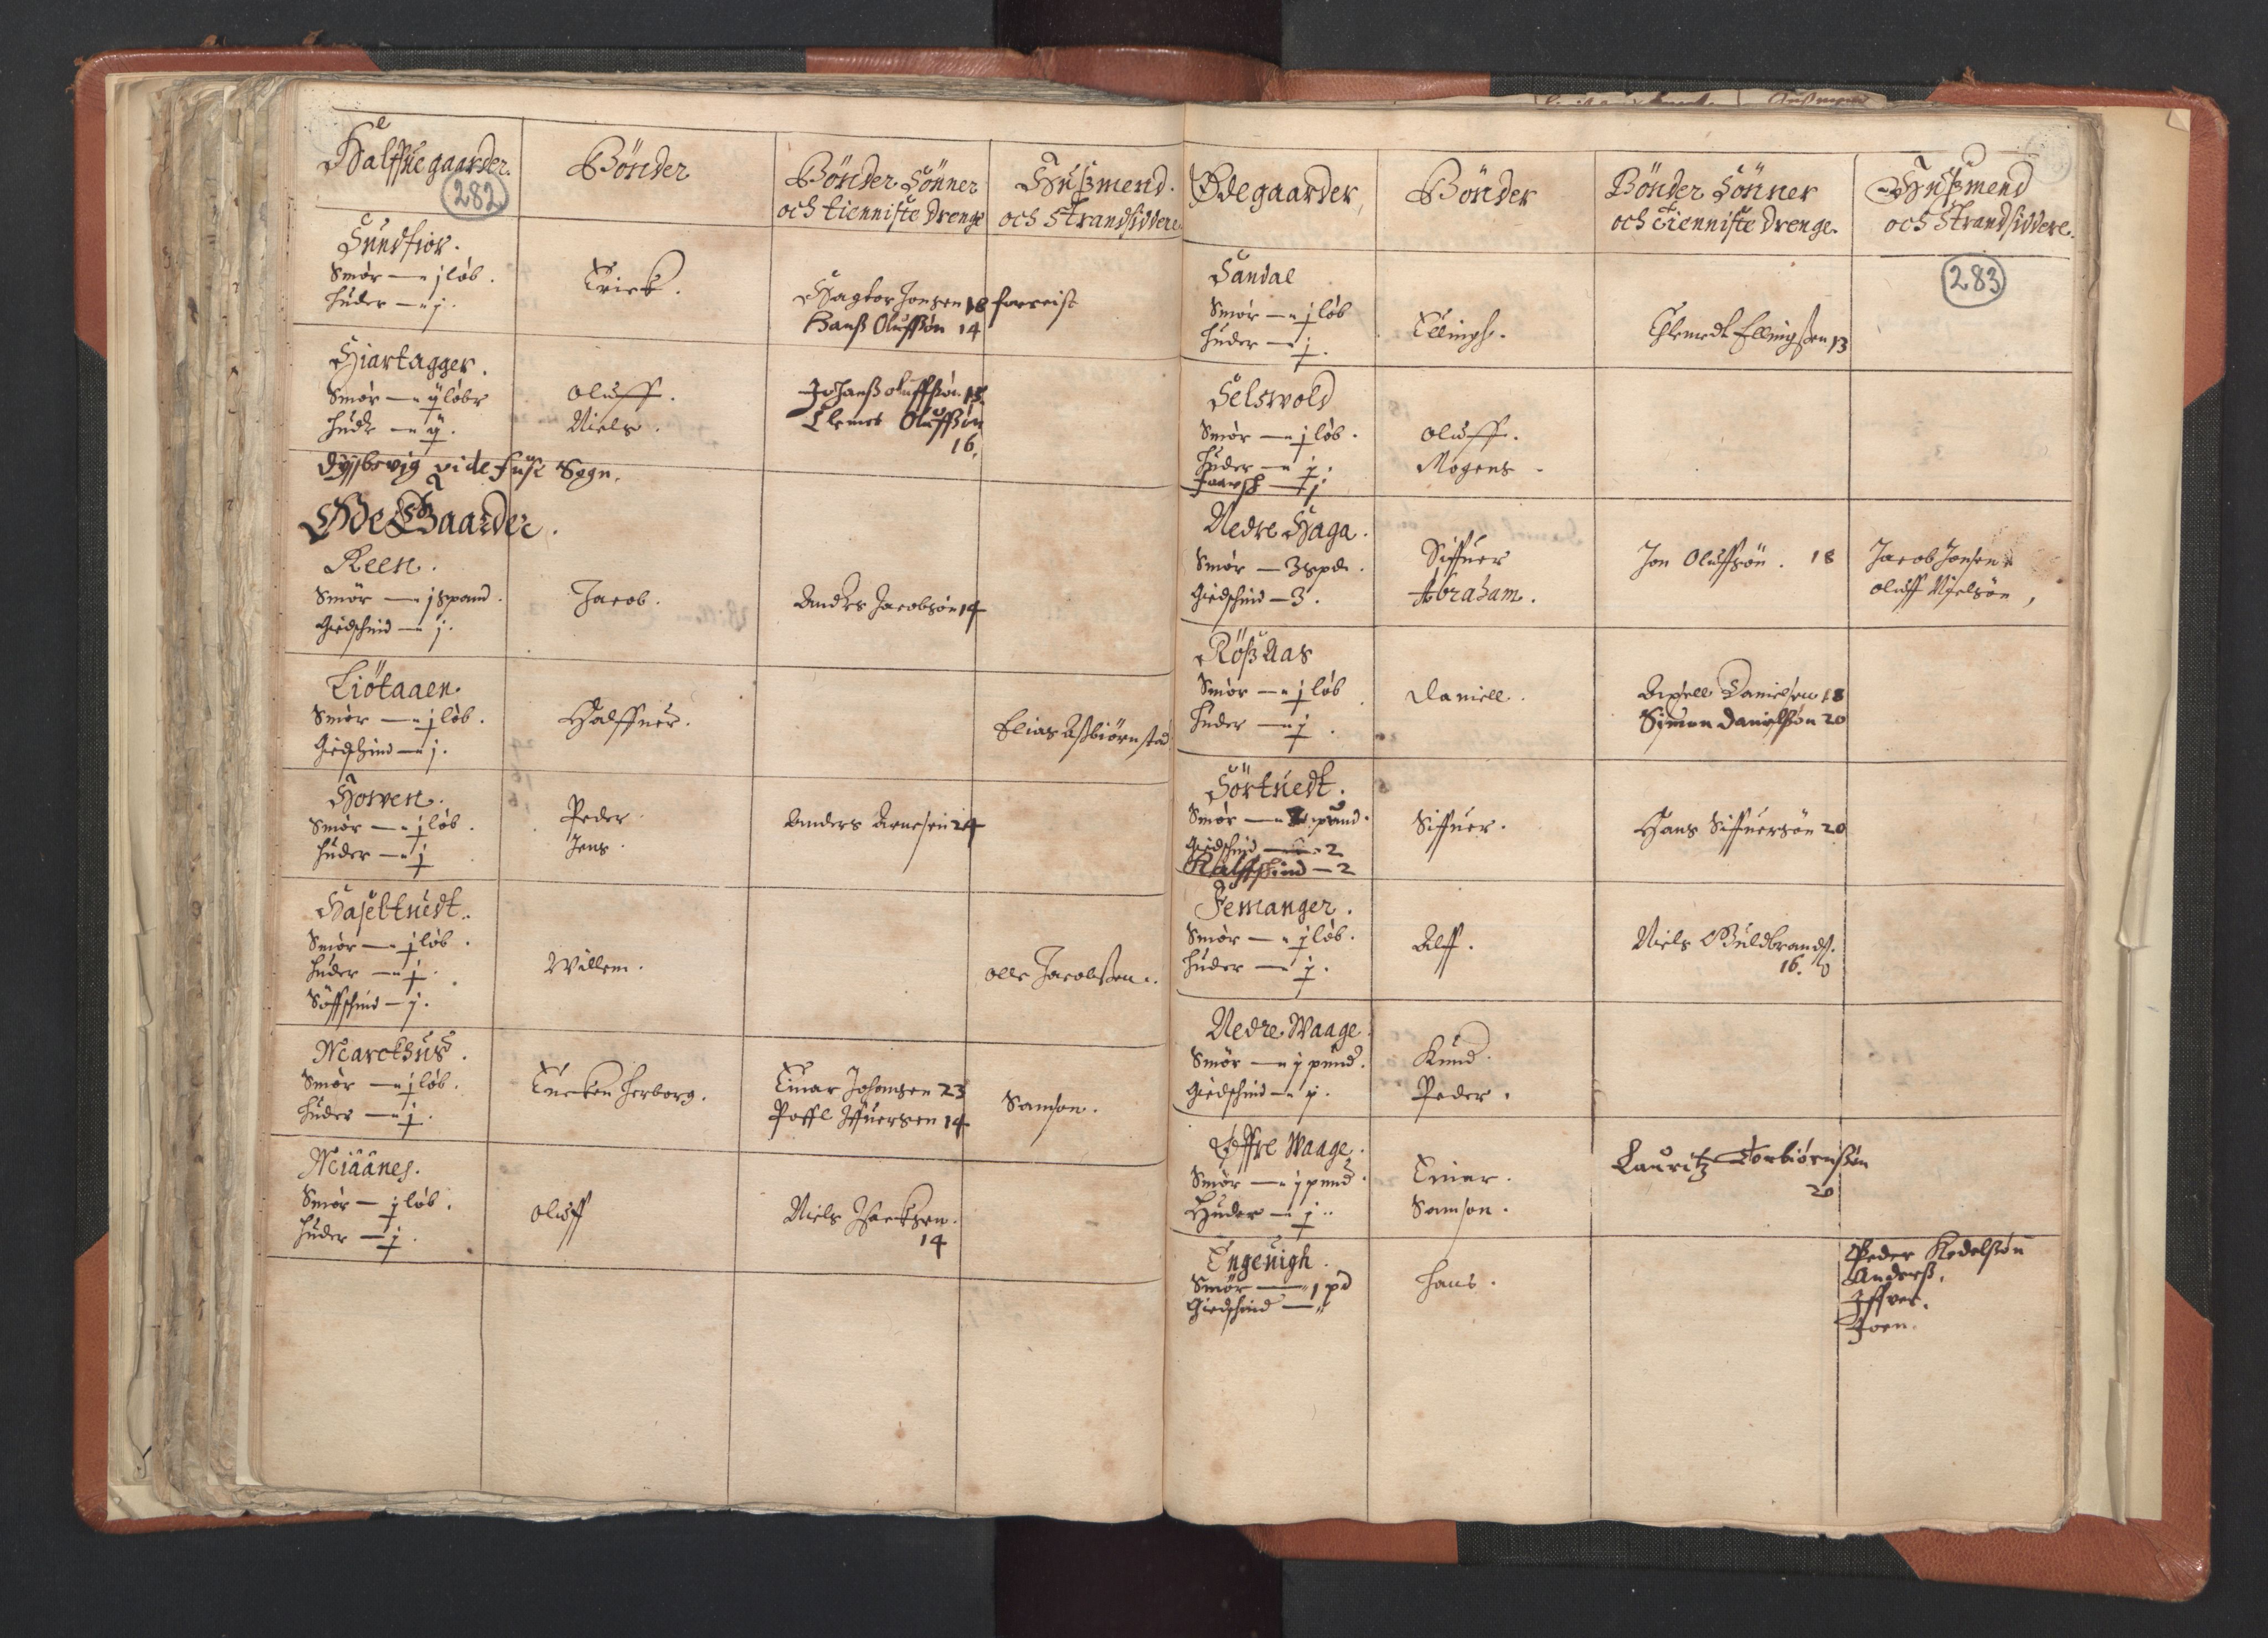 Halffue gaarder.
282
Bönder
Bönder Sönner
och tienniste drenge
Hußmend
och Strandsiddere
Sundfior.
Smör — j löb.
huder — j.
Erick.
Hagtor Jonsen 18 forreist
Hanß Oluffßön 14
Hiartager.
Smör — ij löbr
hudr — ij.
Oluff.
Niels.
Johanß oluffsön 18.
Clemet Oluffßön
16.
Dyssevig vide Fuse Sogn.
Øde Gaarder.
Reen.
Smör — j spand.
Giedschind — j.
Jacob.
Anders Jacobsön 14
Liötaaen.
Smör — j löb.
Giedschind — j.
Halffuer.
Elias Aßbiörnstad
Howen.
Smör — j löb.
huder — j
Peder.
Jens.
Anders Arnesen 24
Haseltuedt.
Smör — j löb.
huder — j.
Söffschind — j.
Willem.
Olle Jacobsen.
Marckhus.
Smör — j löb.
huder — j.
Encken herborg.
Einar Johansen 23
Poffl Iffuersen 14
Samson.
Miåånes.
Smör — j löb.
huder — j.
Oluff
Niels Isacksen.
14
Ødegaarder
Bönder
Bönder Sönner
och tienniste drenge.
Hußmend
och Strandsiddere.
283
Sandal
Smör — j löb
huder — j.
Ellingh.
Clemedt Ellingßen 13
Selswold
Smör — j löb.
huder — j.
Oluff.
Mogens.
Nedre Haga.
Smör — 3 spd.
Giedschind — 3.
Siffuer
Abraham.
Jon Oluffsön. 18
Jacob Jonsen
Oluff Nielsön,
Rößaas
Smör — j löb
huder — j.
Daniell.
Axsell Danielsen 18
Simon Danielßön 20
Hörtuedt.
Giedschind — 2
Kalffskind — 2
Siffuer.
Hans Siffuersön 20
Femanger.
Smör — j löb.
huder — j.
Alff.
Niels Guldbrandß.
16.
Nedre Waage
Smör — j pund.
Giedschind — j.
Knud.
Peder.
Øffre Waage.
Smör — j pund.
Huder — j.
Einar.
Samson.
Lauritz Torbiörnßön
20
Engeuigh.
Smör — 1 pd
Giedschind —
hans.
Peder Kedelßön
Anderß.
Iffver.
Joen.